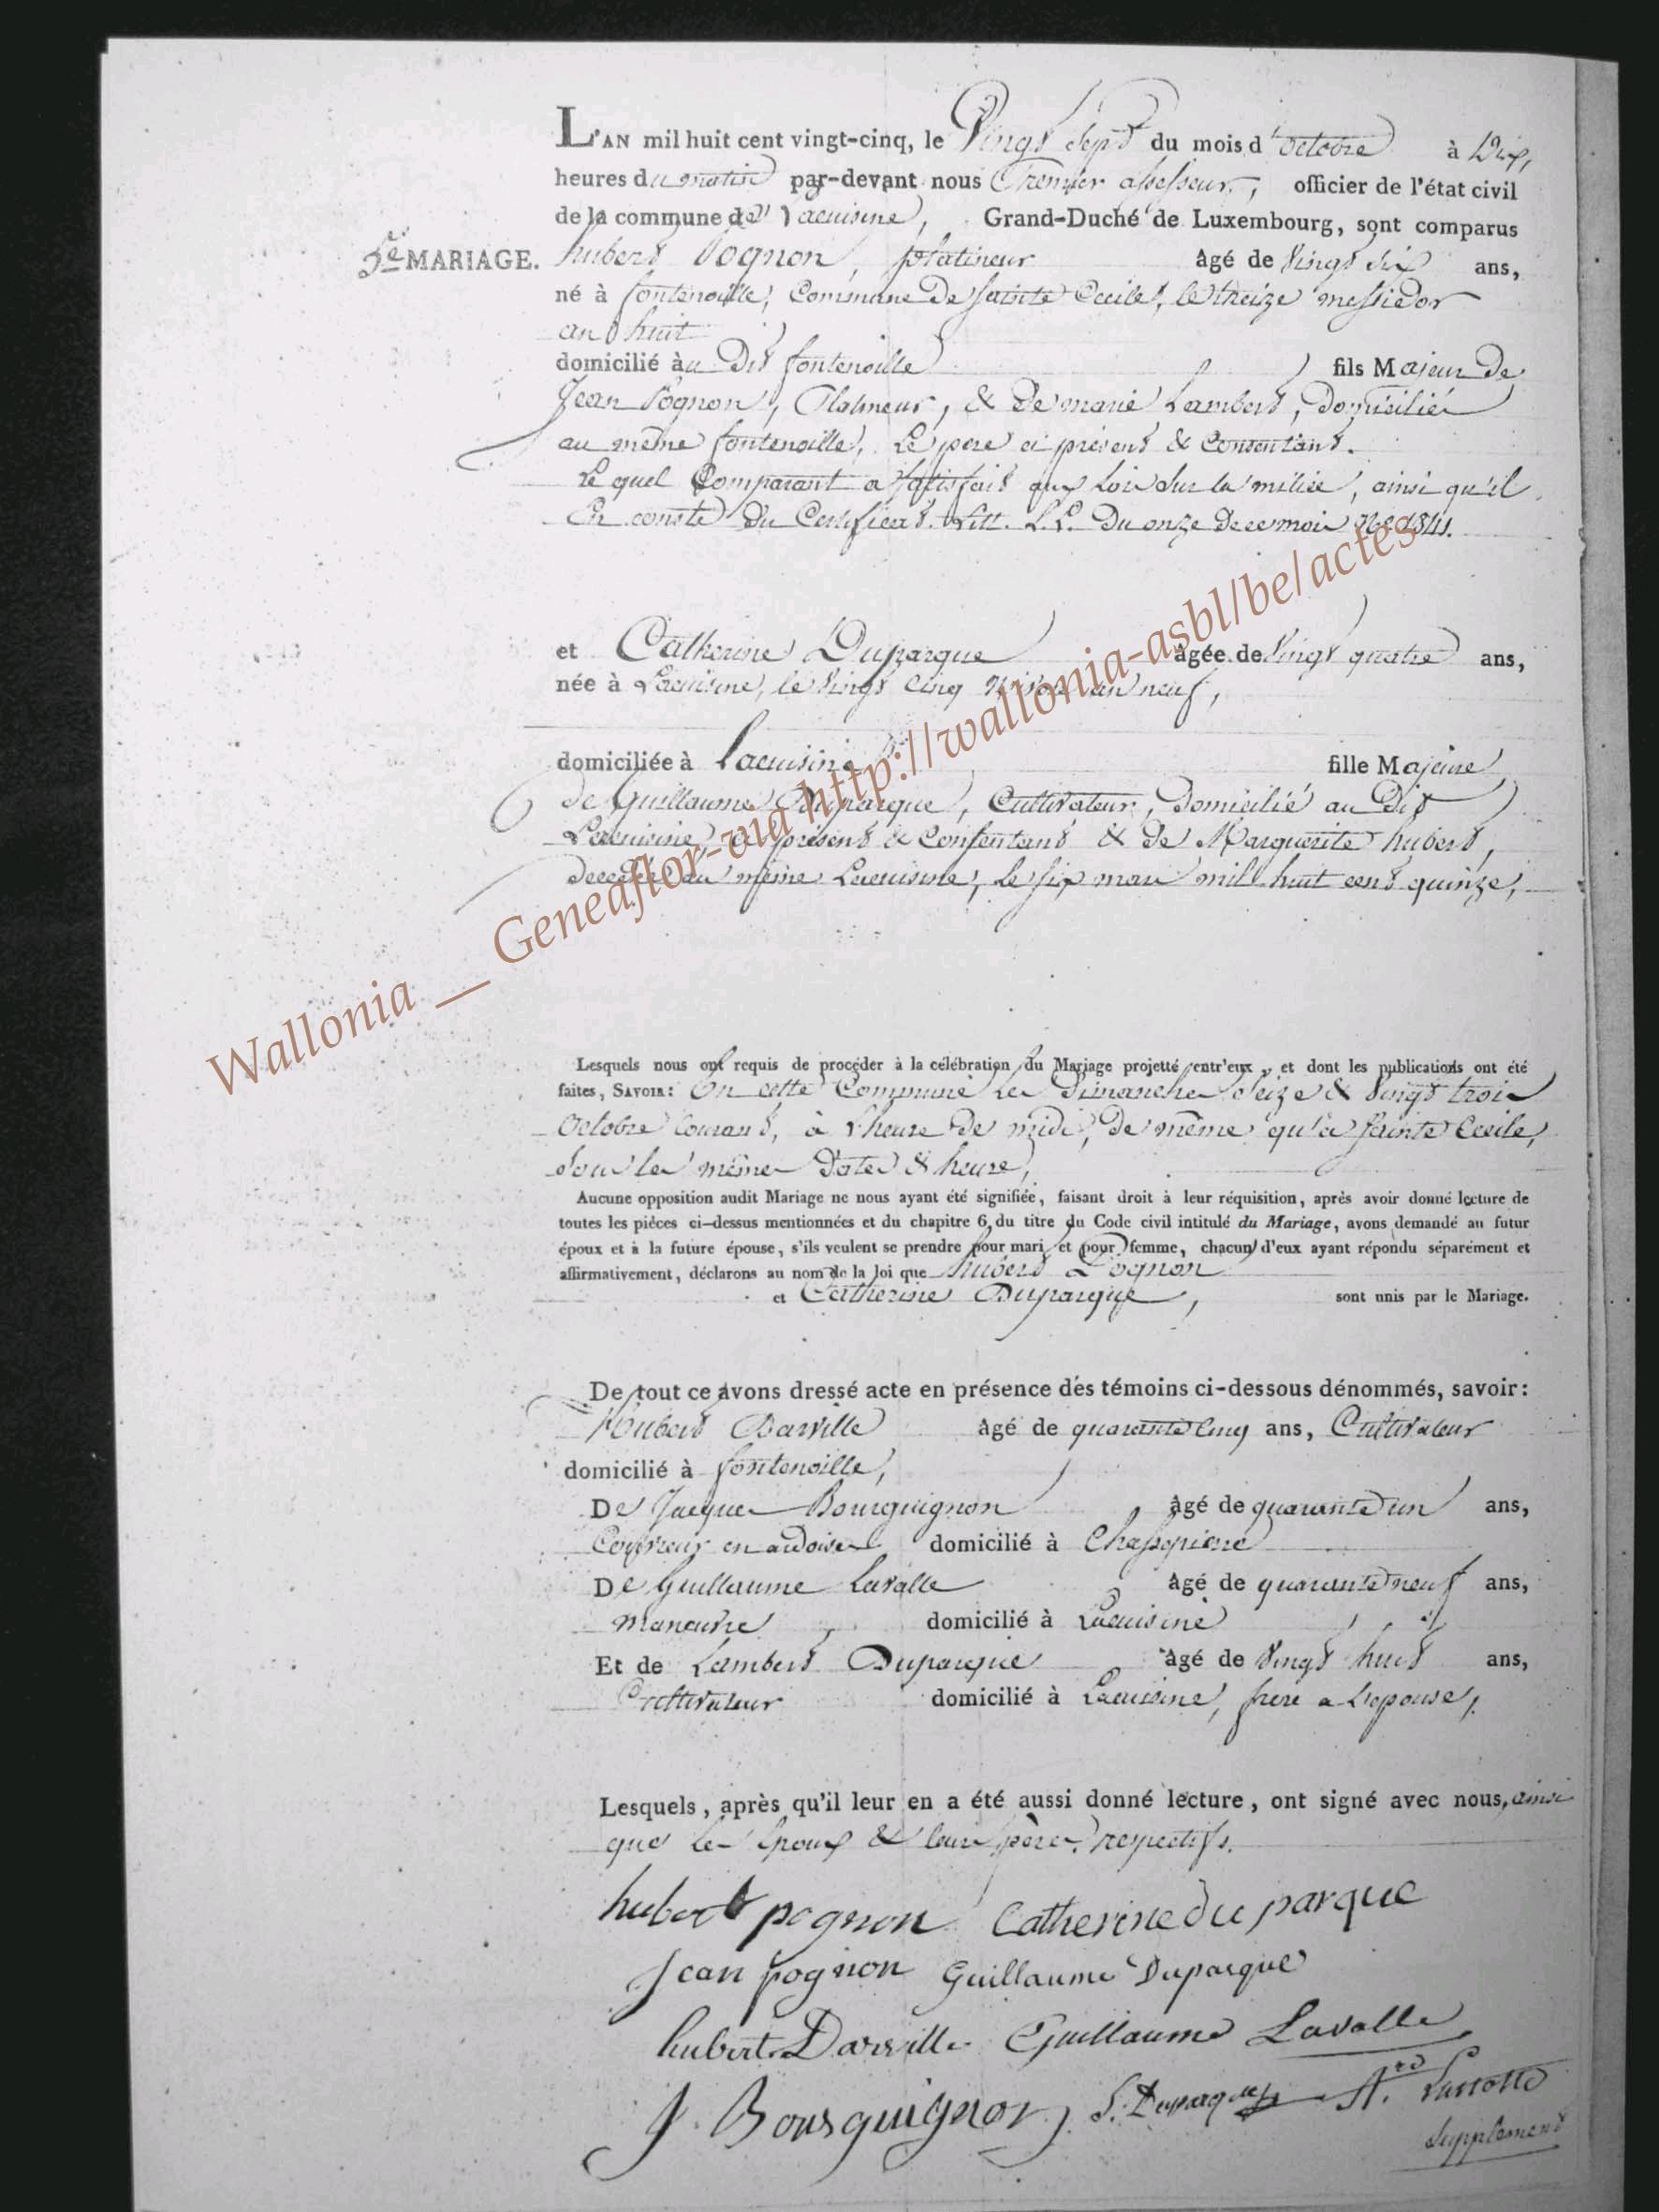 L'AN mil huit cent vingt-cinq, le Vingt Sept du mois d'octobre à Dix,
heures du matin par-devant nous Premier assesseur, officier de l'état civil
de la commune de Lacuisine, Grand-Duché de Luxembourg, sont comparus
5e MARIAGE. hubert Pognon, platineur âgé de Vingt Six ans,
né à fontenoille, Commune De Sainte Cecile, le treize messidor
an huit
domicilié au Dit fontenoille fils Majeur De
Jean Pognon, Platineur, & De marie Lambert, Domiciliés
au même fontenoille, Le pere ci présent & Consentant.
Le quel Comparant a satisfait aux Lois sur la milice, ainsi qu'il
En conste du Certificat Litt. L.L. Du onze De ce mois
et Catherine Duparque âgée de Vingt quatre ans,
née à Lacuisine, le Vingt Cinq Nivose an neuf,
domiciliée à Lacuisine fille Majeure
de Guillaume Duparque, Cultivateur, Domicilié au Dit
Lacuisine, ci présent & Consentant & De Marguerite hubert,
Decedée au même Lacuisine, Le six mars mil huit cent quinze,
Wallonia __ Geneaflor-via http://wallonia-asbl/be/actes
Lesquels nous ont requis de procéder à la célébration du Mariage projetté entr'eux, et dont les publications ont été
faites, SAVOIR: En cette Commune Les Dimanches Seize & Vingt trois
Octobre Courant, à l'heure De midi, De même qu'à Sainte Cecile,
Sous les mêmes Dates & heure,
Aucune opposition audit Mariage ne nous ayant été signifiée, faisant droit à leur réquisition, après avoir donné lecture de
toutes les pièces ci-dessus mentionnées et du chapitre 6, du titre du Code civil intitulé du Mariage, avons demandé au futur
époux et à la future épouse, s'ils veulent se prendre pour mari et pour femme, chacun d'eux ayant répondu séparément et
affirmativement, déclarons au nom de la loi que hubert Pognon
et Catherine Duparque, sont unis par le Mariage.
De tout ce avons dressé acte en présence des témoins ci-dessous dénommés, savoir:
Hubert Darville âgé de quarante Cinq ans, Cultivateur
domicilié à fontenoille,
De Jacques Bourguignon âgé de quarante un ans,
Couvreur en ardoises domicilié à Chassepierre
De Guillaume Lavalle âgé de quarante neuf ans,
manœuvre domicilié à Lacuisine
Et de Lambert Duparque âgé de Vingt huit ans,
Cultivateur domicilié à Lacuisine, frere a L'epouse,
Lesquels, après qu'il leur en a été aussi donné lecture, ont signé avec nous, ainsi
que les Epoux & leurs pères respectifs.
hubert pognon Catherine du parque
Jean pognon Guillaume Duparque
hubert Darville Guillaume Lavalle
J. Bourguignon L. Duparque